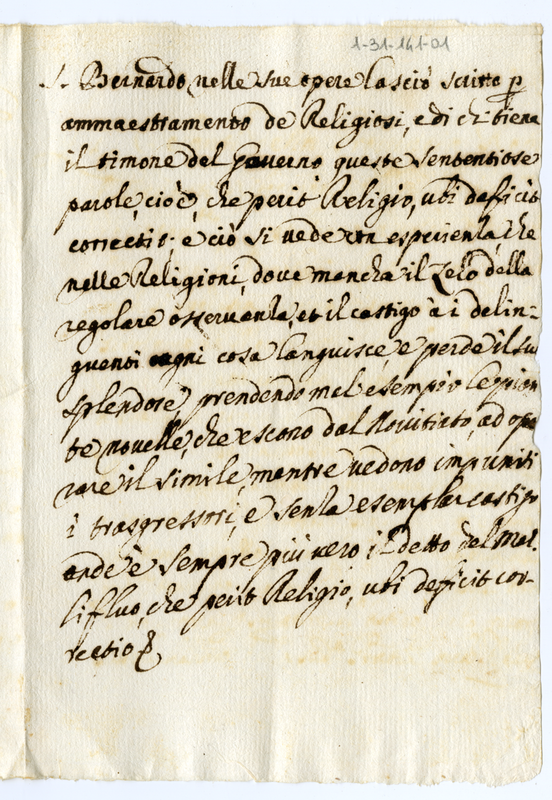 1-31-141-01
S. Bernardo nelle sue opere lasciò scritto p
ammaestramento de Religiosi, e di chi tiene
il timone del Governo queste sententiose
parole, cioè, che perit Religio, ubi deficit
correctio; e ciò si vede con esperienza, che
nelle Religioni, dove mancha il Zelo della
regolare osservanza, et il castigo à i delin-
quenti ogni cosa languisce, e perde il suo
splendore, prendendo mal esempio le pian
te novelle, che escono dal Novitiato, ad ope
rare il simile, mentre vedono impuniti
i trasgressori, e senza esemplar castigo
onde è sempre più vero il detto del Mel-
lifluo, che perit Religio, ubi deficit cor-
rectio